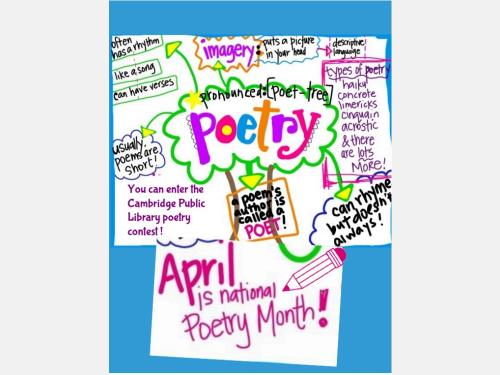 often
has a rhythm
like a song
can have verses
imagery:
puts a picture
in your head
descriptive
language
pronounced:[poet-tree]
poetry
types of poetry
haiku
concrete
limericks
cinquain
acrostic
& there
are lots
MORE!
usually,
poems are
short!
You can enter the
Cambridge Public
Library poetry
contest !
a poem's
author is
called a
POET!
can rhyme
but doesn't
always!
April
is national
Poetry Month!